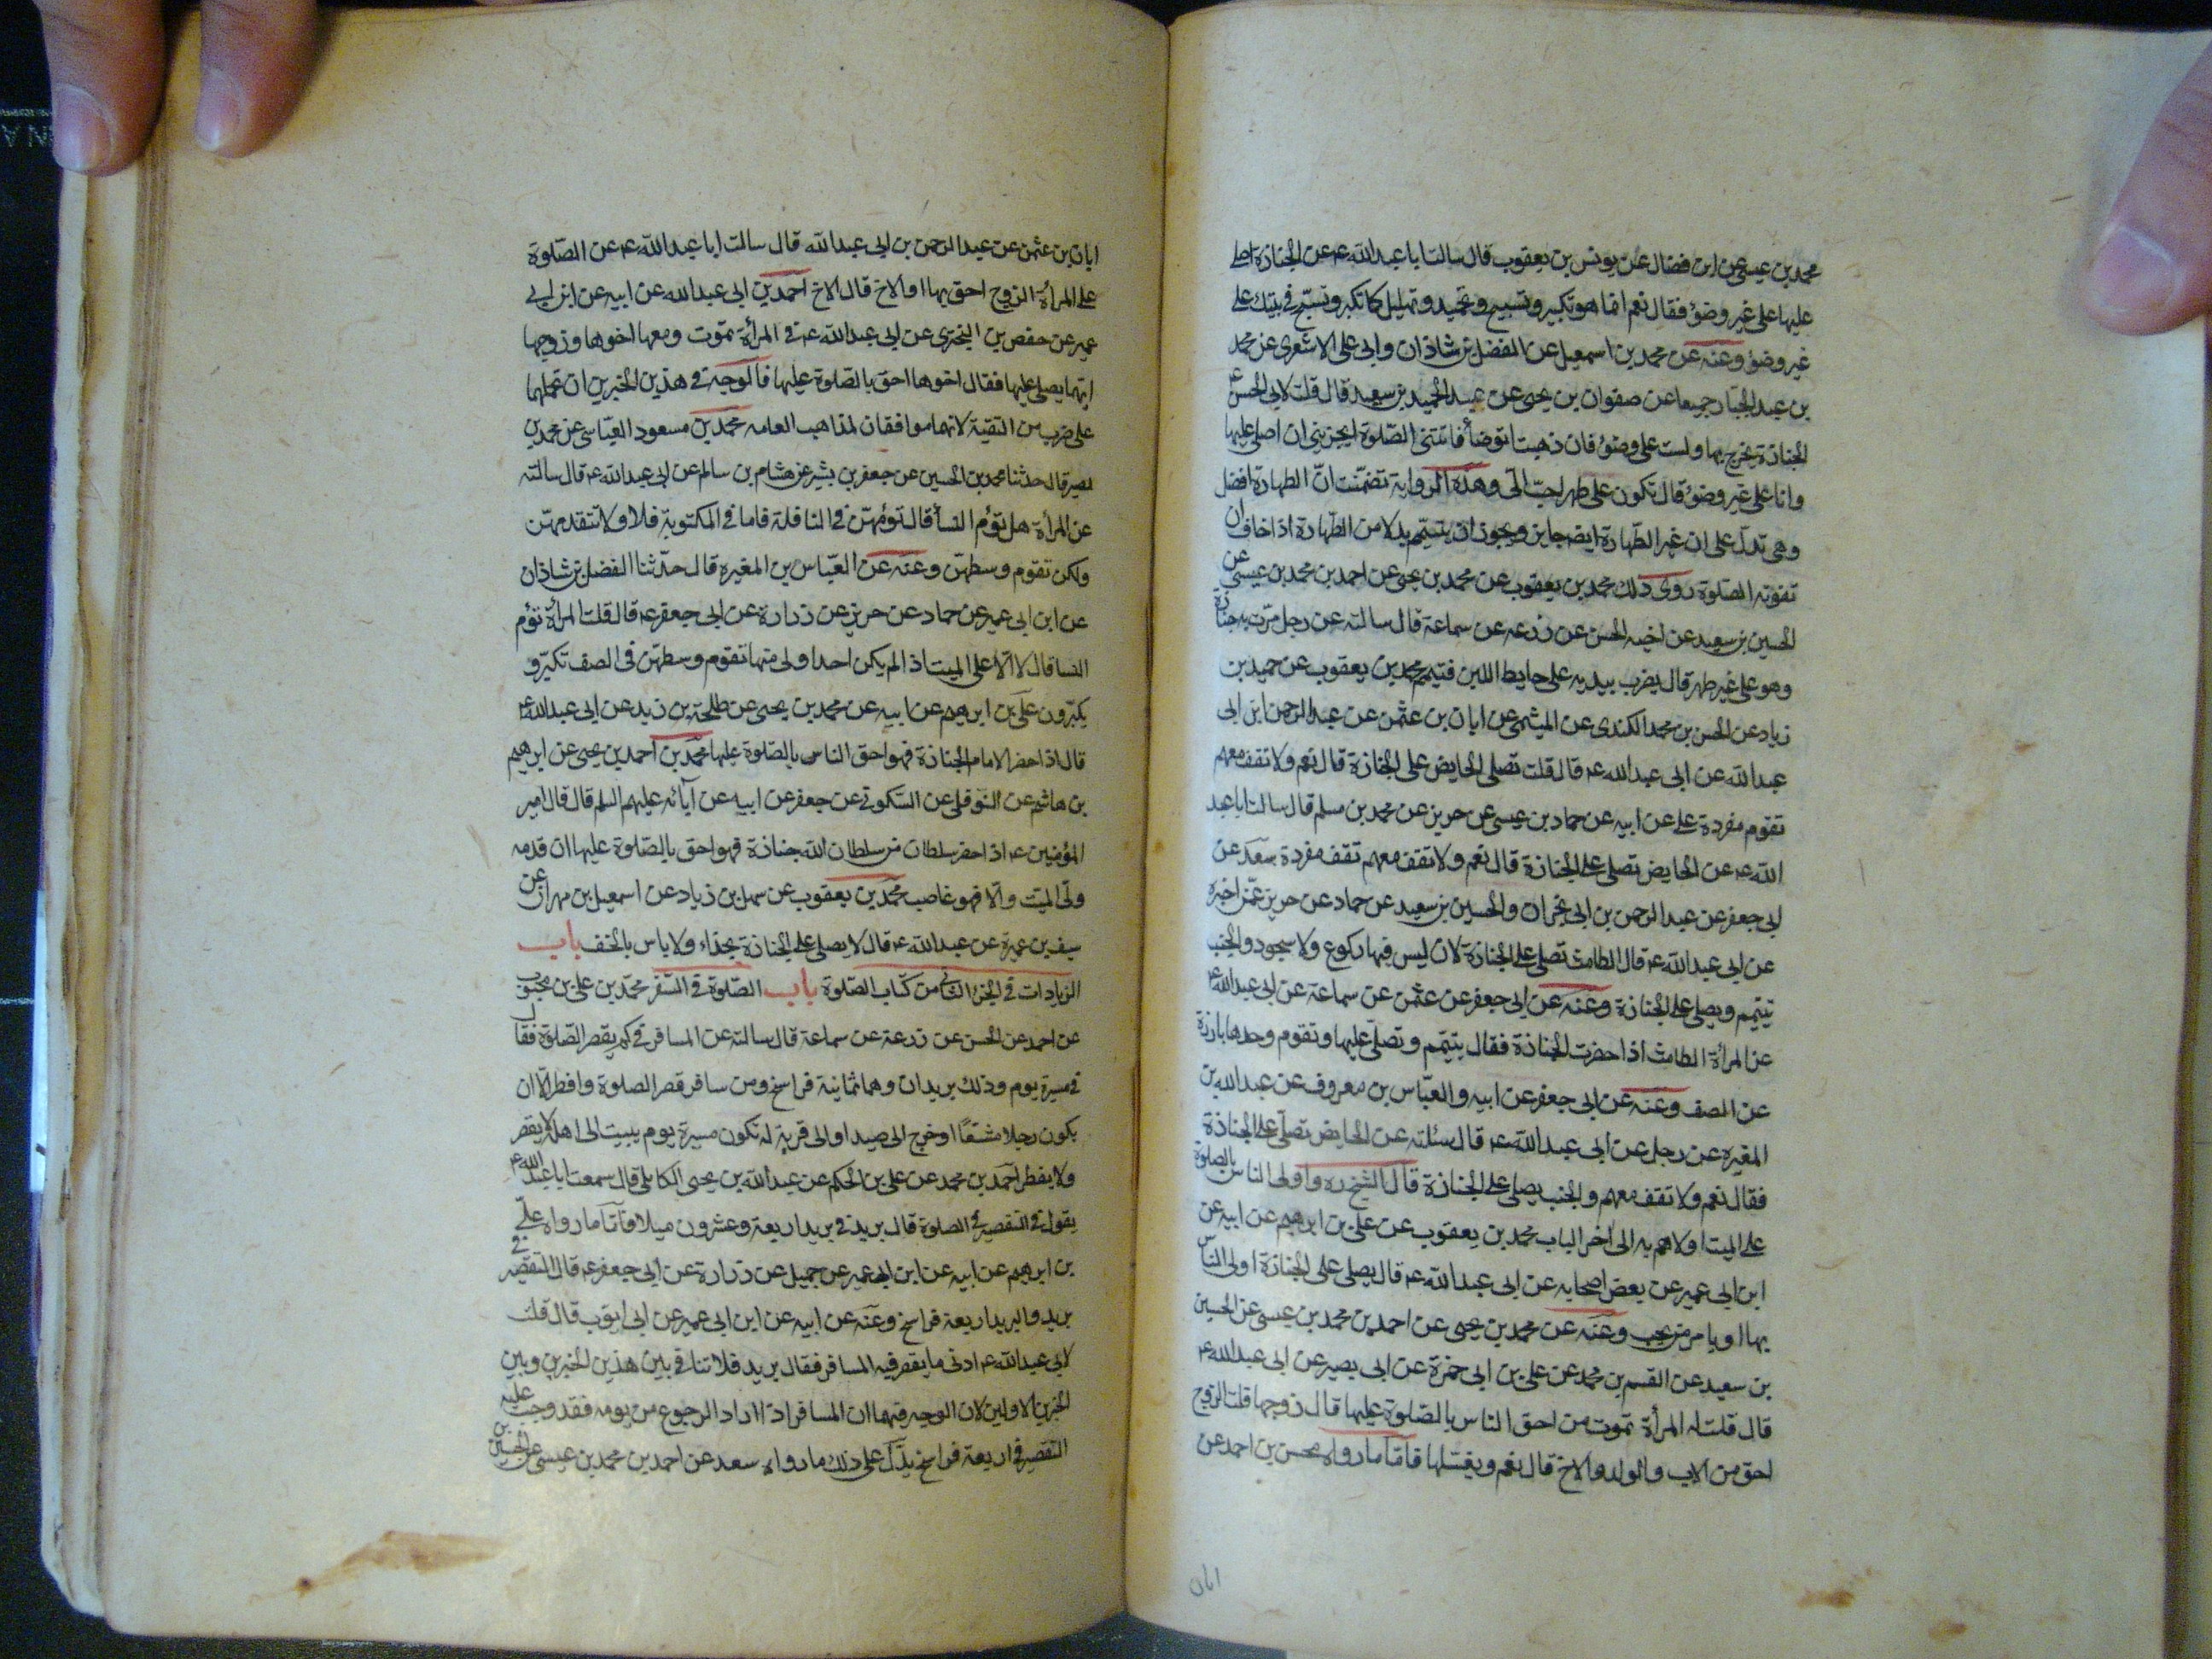 محمد بن عيسى عن ابن فضال عن يونس بن يعقوب قال سالت ابا عبد الله ع عن الجنازة اصلى
عليها على غير وضوء فقال نعم انما هو تكبير وتسبيح وتحميد وتهليل كما تكبر وتسبح في بيتك على
غير وضوء وعنه عن محمد بن اسمعيل عن الفضل بن شاذان وابى على الاشعرى عن محمد
بن عبد الجبار جميعا عن صفوان بن يحيى عن عبد الحميد بن سعيد قال قلت لابى الحسن ع
الجنازة يخرج بها ولست على وضوء فان ذهبت اتوضأ فاتتنى الصلوة ايجزينى ان اصلى عليها
وانا على غير وضوء قال تكون على طهر احب الىّ وهذه الرواية تضمنت انّ الطهارة افضل
وهى تدل على ان غير الطهارة ايضا جايز ويجوز ان يتيمم بدلا من الطهارة اذا خاف ان
تفوته الصلوة روى ذلك محمد بن يعقوب عن محمد بن يحيى عن احمد بن محمد بن عيسى عن
الحسين بن سعيد عن اخيه الحسن عن زرعه عن سماعة قال سالته عن رجل مرّت به جنازة
وهو على غير طهر قال يضرب بيديه على حايط اللبن فتيمم محمد بن يعقوب عن حميد بن
زياد عن الحسن بن محمد الكندى عن الميثمى عن ابان بن عثمن عن عبد الرحمن ابن ابى
عبد الله عن ابى عبد الله ع قال قلت تصلى الحايض على الجنازة قال نعم ولا تقف معهم
تقوم مفردة على عن ابيه عن حماد بن عيسى عن حريز عن محمد بن مسلم قال سالت ابا عبد
الله ع عن الحايض تصلى على الجنازة قال نعم ولا تقف معهم تقف مفردة سعد عن
ابى جعفر عن عبد الرحمن بن ابى نجران والحسين بن سعيد عن حماد عن حريز عمن اخبره
عن ابى عبد الله ع قال الطامث تصلى على الجنازة لان ليس فيها ركوع ولا سجود والجنب
تيتمم ويصلى على الجنازة وعنه عن ابى جعفر عن عثمن عن سماعة عن ابى عبد الله ع
عن المرأة الطامث اذا حضرت الجنازة فقال يتيمم وتصلى عليها وتقوم وحدها بارزة
عن الصف وعنه عن ابى جعفر عن ابيه والعباس بن معروف عن عبد الله بن
المغيره عن رجل عن ابى عبد الله ع قال سئلته عن الحايض تصلى على الجنازة
فقال نعم ولا تقف معهم والجنب يصلى على الجنازة قال الشيخ ره واولى الناس بالصلوة
على الميت اولاهم به الى اخر الباب محمد بن يعقوب عن على بن ابرهيم عن ابيه عن
ابن ابى عمير عن بعض اصحابه عن ابى عبد الله ع قال يصلى على الجنازة اولى الناس
بها او يامر من يحب وعنه عن محمد بن يحيى عن احمد بن محمد بن عيسى عن الحسين
بن سعيد عن القسم بن محمد عن على بن ابى حمزة عن ابى بصير عن ابى عبد الله ع
قال قلت له المرأة تموت من احق الناس بالصلوة عليها قال زوجها قلت الزوج
احق من الاب والولد والاخ قال نعم ويغسلها فاما ما رواه محسن بن احمد عن
ابان
ابان بن عثمن عن عبد الرحمن بن ابى عبد الله قال سالت ابا عبد الله ع عن الصلوة
على المرأة الزوج احق بها او الاخ قال الاخ احمد بن ابى عبد الله عن ابيه عن ابن ابى
عمير عن حفص بن البخترى عن ابى عبد الله ع في المرأة تموت ومعها اخوها وزوجها
ايهما يصلى عليها فقال اخوها احق بالصلوة عليها فالوجه في هذين الخبرين ان تحملهما
على ضرب من التقية لانهما موافقان لمذاهب العامه محمد بن مسعود العياشى عن محمد بن
نصير قال حدثنا محمد بن الحسين عن جعفر بن بشير عن هشام بن سالم عن ابى عبد الله ع قال سالته
عن المرأة هل تؤم النسأ قال تؤمهن في النافلة فاما في المكتوبة فلا ولا تتقدمهن
ولكن تقوم وسطهن وعنه عن العباس بن المغيره قال حدثنا الفضل بن شاذان
عن ابن ابى عمير عن حماد عن حريز عن زرارة عن ابى جعفر ع قال قلت المرأة تؤم
النسا قال لا الّا على الميت اذا لم يكن احد اولى منها تقوم وسطهن في الصف تكبر و
يكبرون على بن ابرهيم عن ابيه عن محمد بن يحيى عن طلحة بن زيد عن ابى عبد الله ع
قال اذا حضر الامام الجنازة فهو احق الناس بالصلوة عليها محمد بن احمد بن يحيى عن ابرهيم
بن هاشم عن النوفلى عن السكونى عن جعفر عن ابيه عن آبائه عليهم السلم قال قال امير
المؤمنين ع اذا حضر سلطان من سلطان الله جنازة فهو احق بالصلوة عليها ان قدمه
ولى الميت والا فهو غاصب محمد بن يعقوب عن سهل بن زياد عن اسمعيل بن مهران عن
سيف بن عميرة عن عبد الله ع قال لا يصلى على الجنازة بحذاء ولا باس بالخف باب
الزيادات في الجزء الثانى من كتاب الصلوة باب الصلوة في السفر محمد بن على بن محبوب
عن احمد عن الحسن عن زرعة عن سماعة قال سالته عن المسافر في كم يقصر الصلوة فقال
في مسيرة يوم وذلك بريدان وهما ثمانية فراسخ ومن سافر قصر الصلوة وافطر الّا ان
يكون رجلا مشيّعا او خرج الى صيد او الى قرية له تكون مسيرة يوم يبيت الى اهله لا يقصر
ولا يفطر احمد بن محمد عن على بن الحكم عن عبد الله بن يحيى الكاهلى قال سمعت ابا عبد الله ع
يقول في التقصير في الصلوة قال بريد في بريد اربعة وعشرون ميلا فاما ما رواه على
بن ابرهيم عن ابيه عن ابن ابى عمير عن جميل عن زرارة عن ابى جعفر ع قال التقصير في
بريد والبريد اربعة فراسخ وعنه عن ابيه عن ابن ابى عمير عن ابى ايوب قال قلت
لابى عبد الله ع ادنى ما يقصر فيه المسافر فقال بريد فلا تنافى بين هذين الخبرين وبين
الخبرين الاولين لان الوجه فيهما ان المسافر اذا اراد الرجوع من يومه فقد وجب عليه
التقصير في اربعة فراسخ يدل على ذلك ما رواه سعد عن احمد بن محمد بن عيسى عن الحسين بن